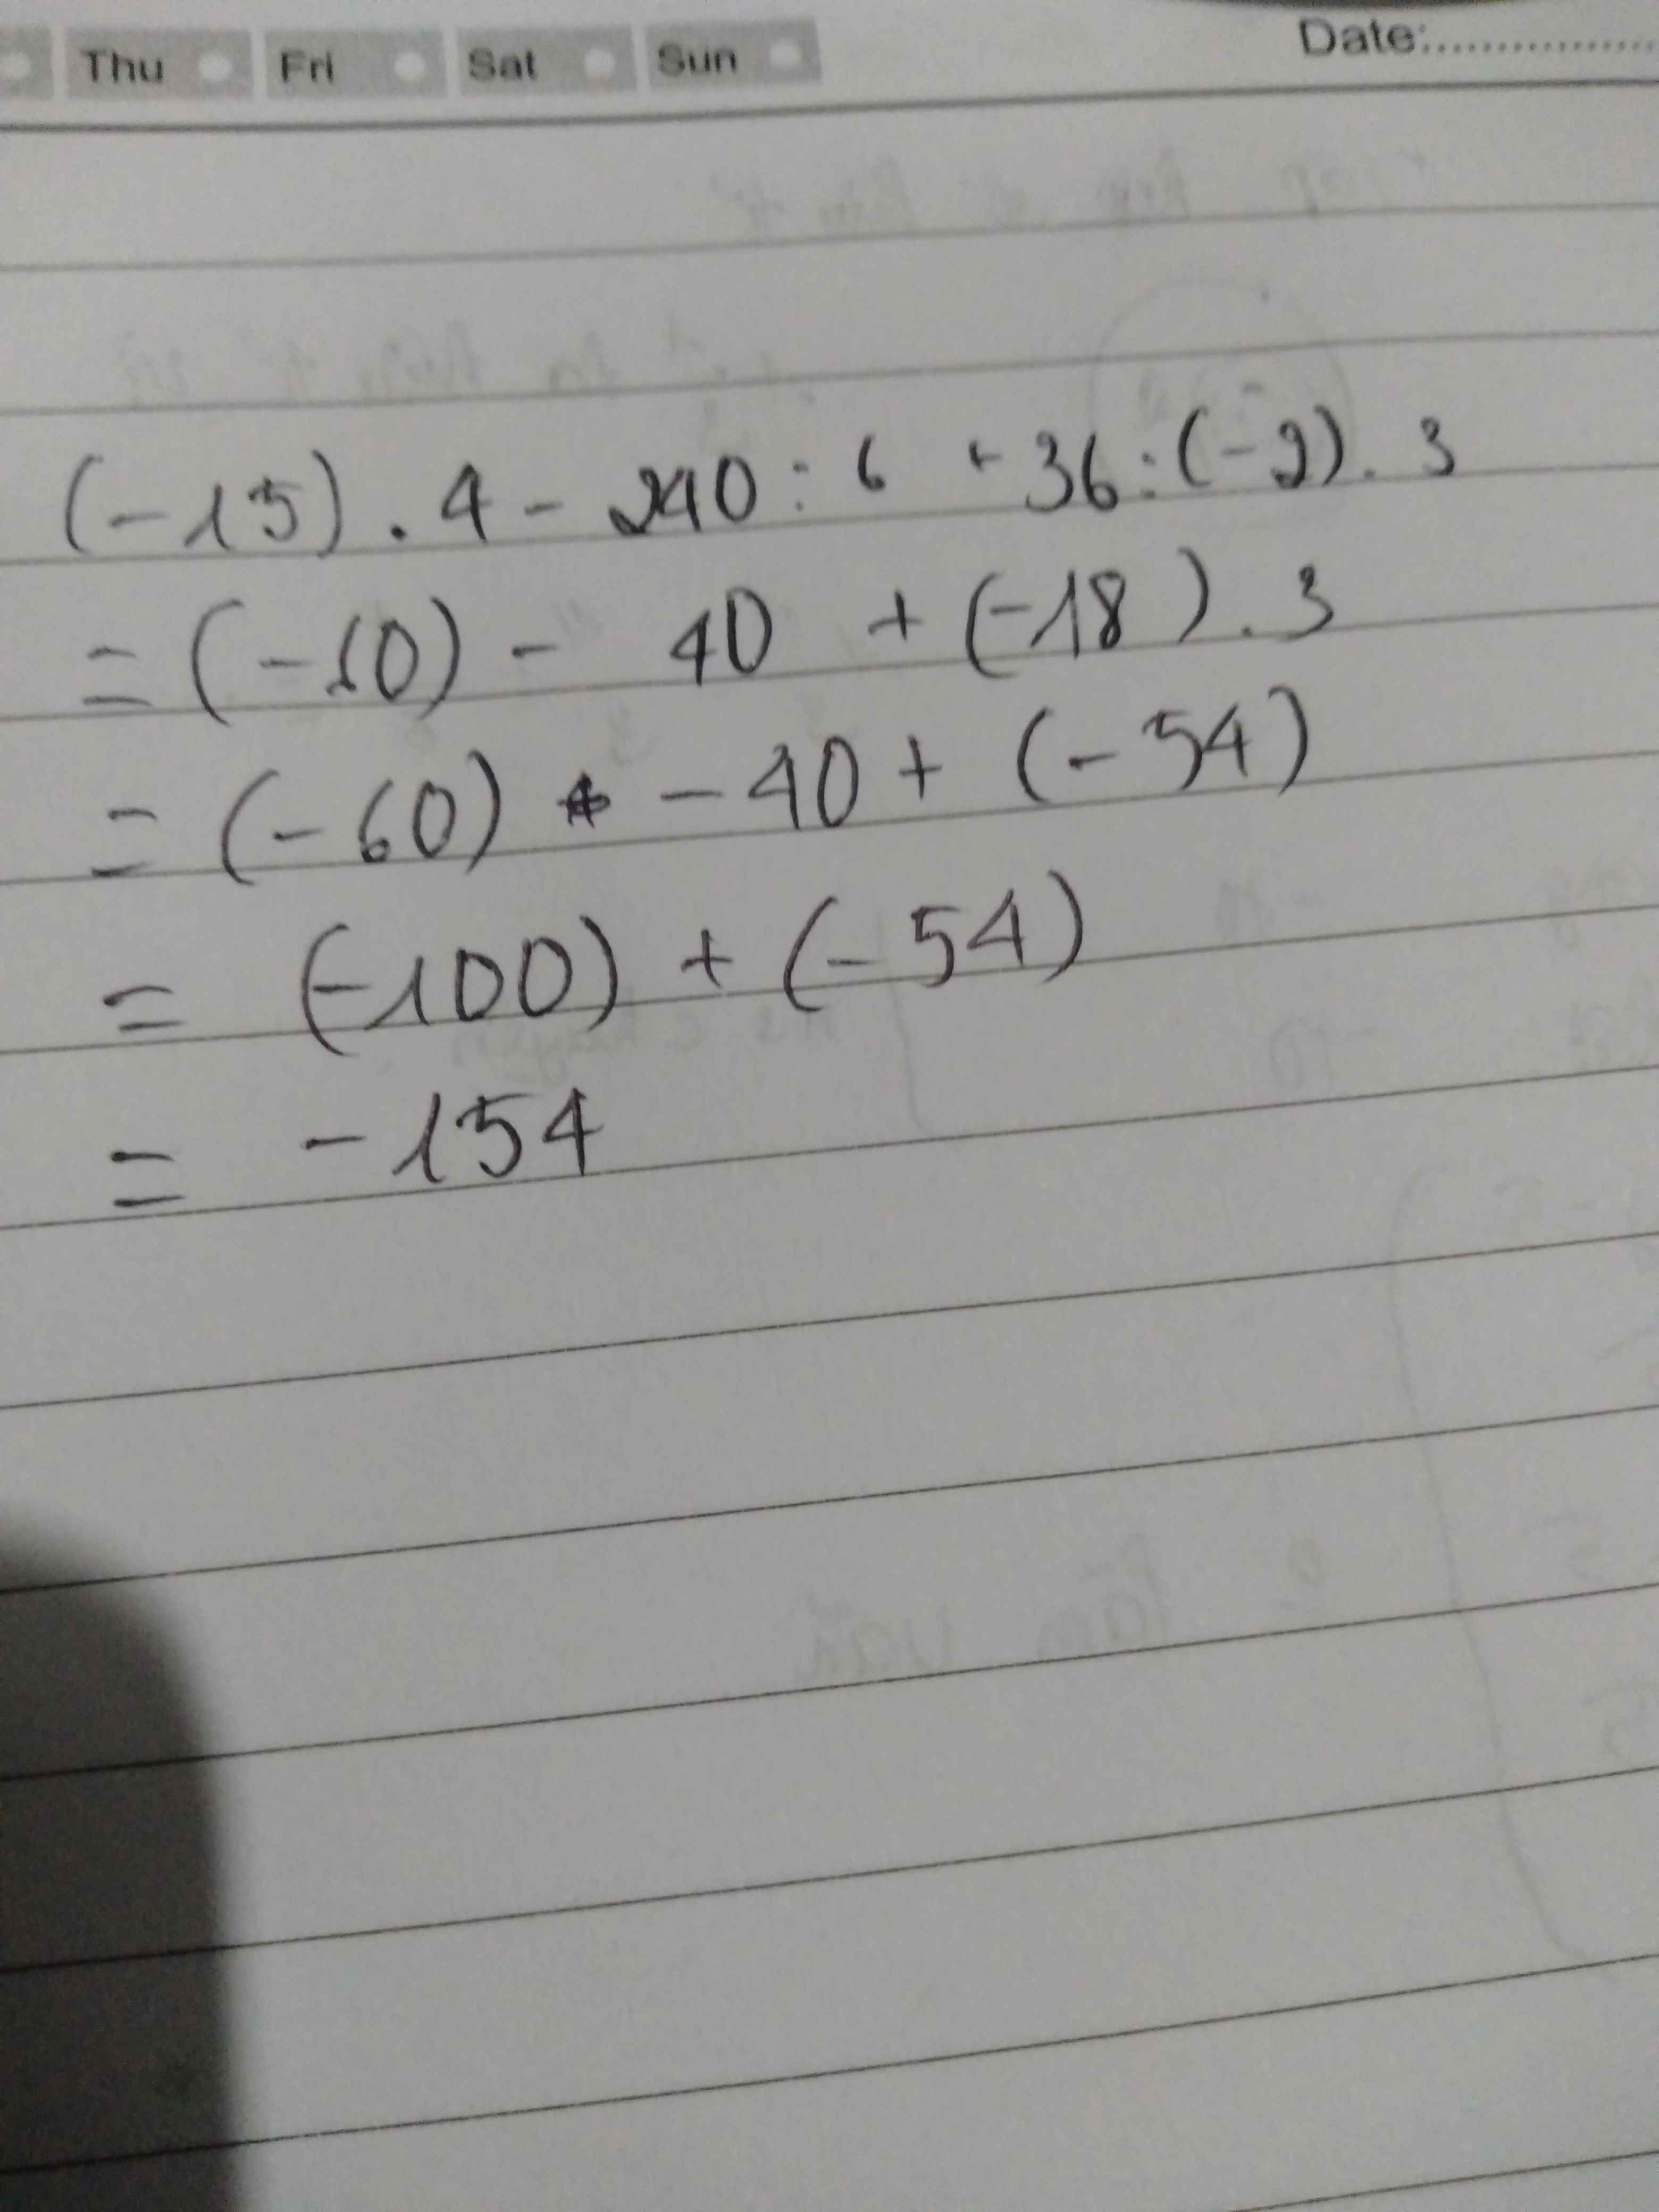 Thu Fri Sat Sun Date:
(-15) . 4 - 240 : 6 + 36 : (-2) . 3
= (-60) - 40 + (-18) . 3
= (-60) - 40 + (-54)
= (-100) + (-54)
= -154